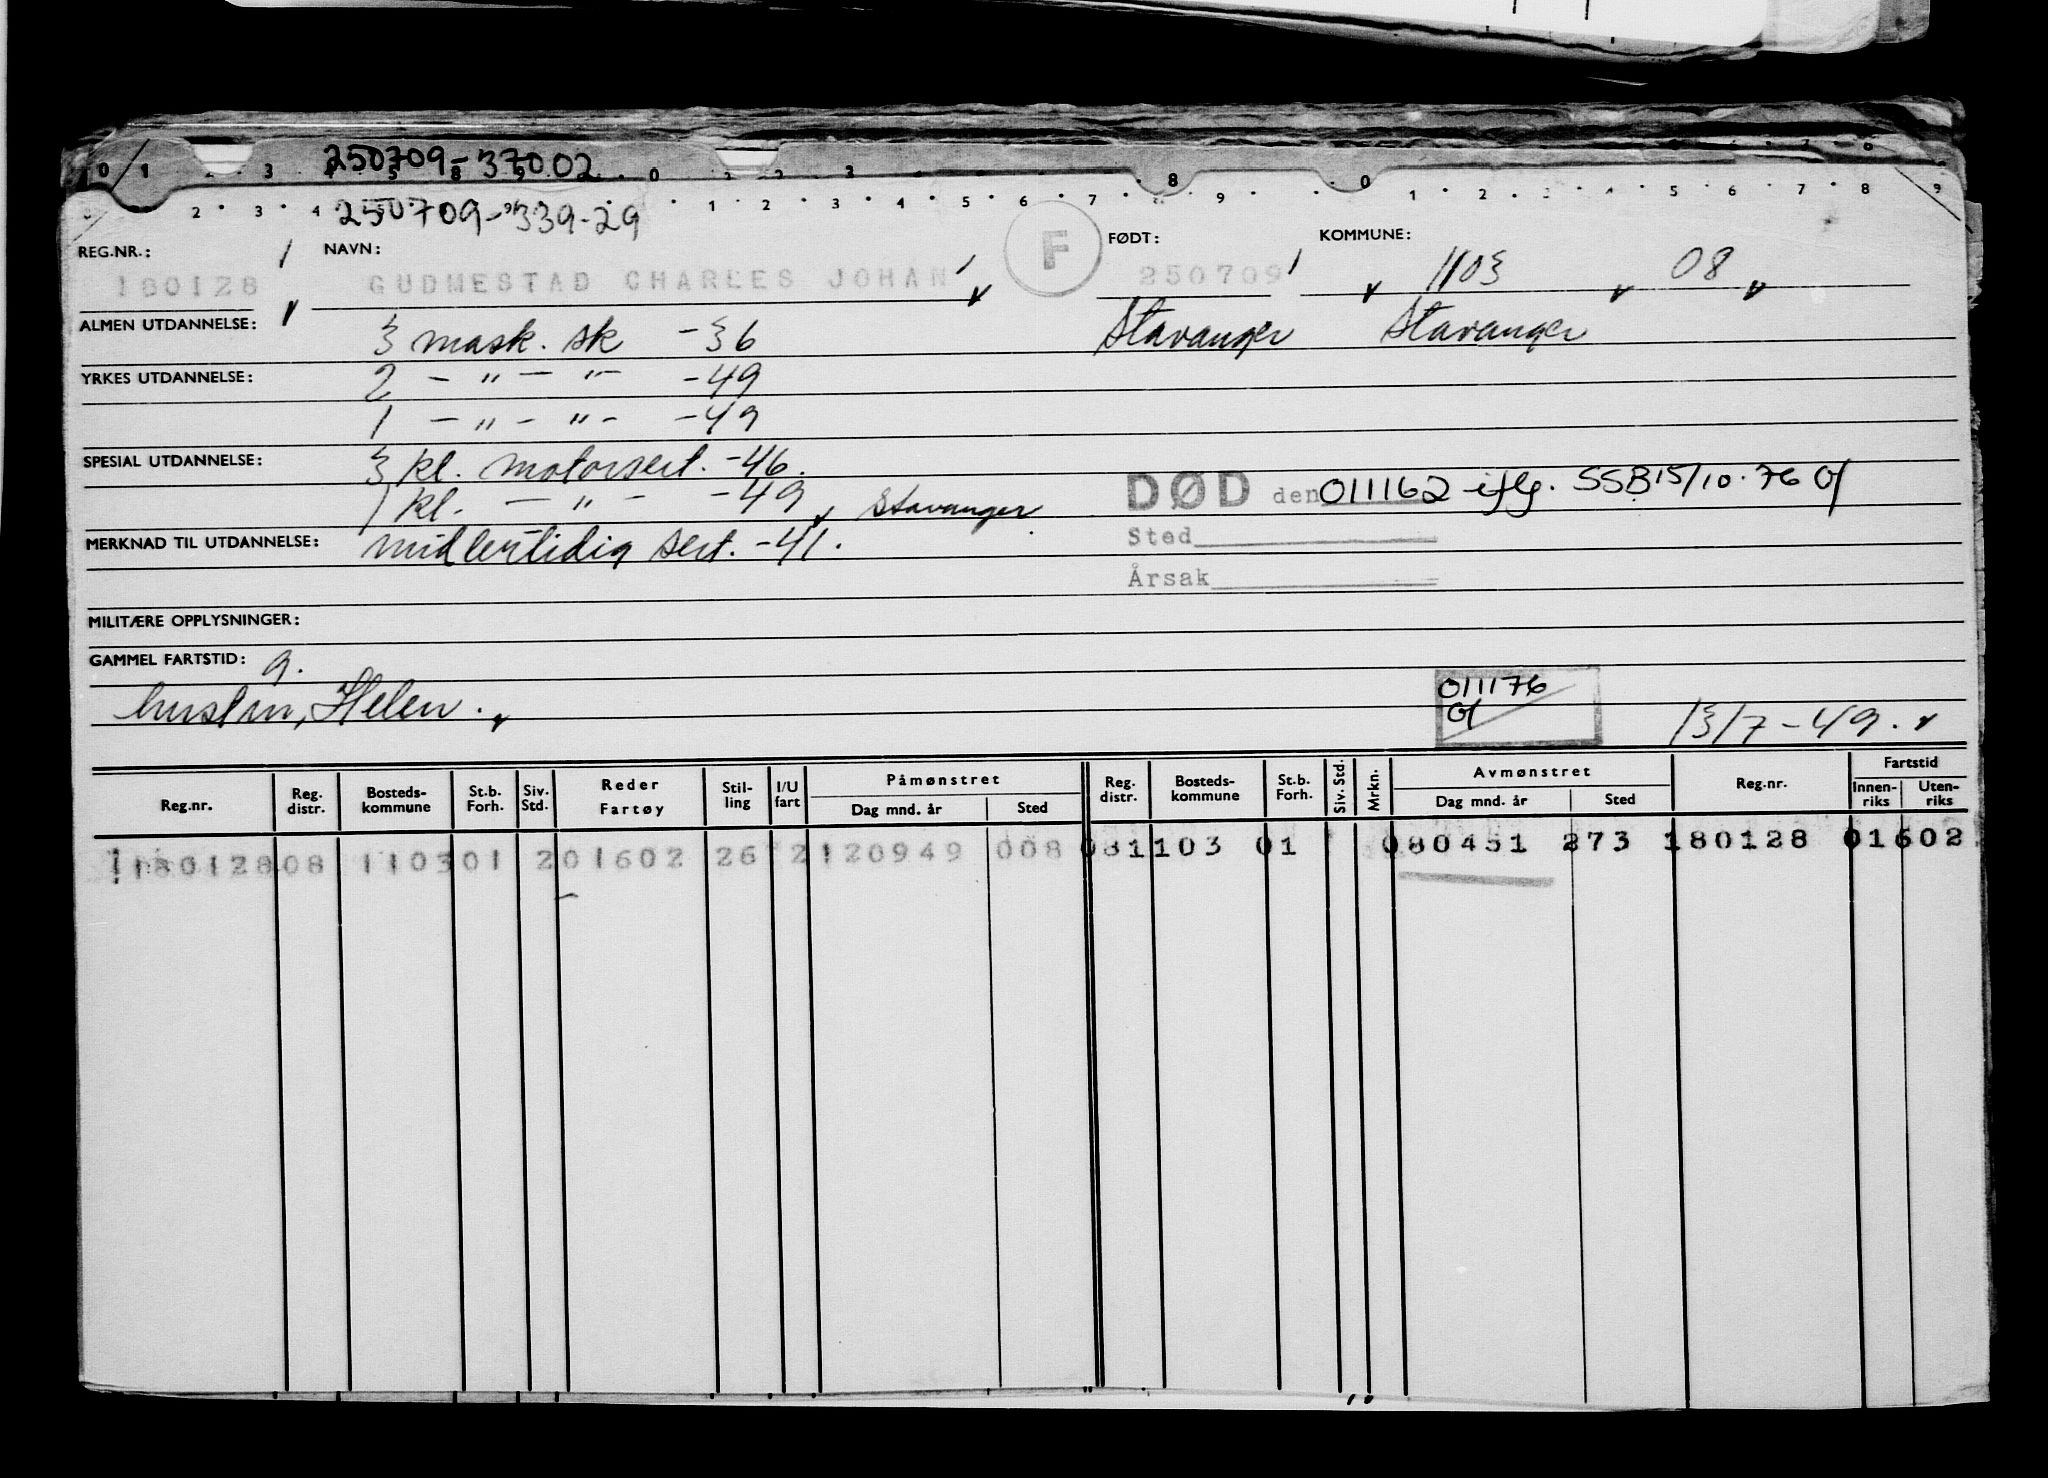 250709-37002
250709-339-29
REG.NR.: NAVN: F FØDT: KOMMUNE:
180128 GUDMESTAD CHARLES JOHAN 250709 1103 08
ALMEN UTDANNELSE: 3 mask. sk -36 Stavanger Stavanger
YRKES UTDANNELSE: 2 - " - " - -49
1 - " - " - -49
SPESIAL UTDANNELSE: 3 kl. motorsert. -46.
DØD den 011162 iflg. SSB 15/10.76
1 kl. - " - -49, Stavanger
Sted
MERKNAD TIL UTDANNELSE: midlertidig sert. -41.
Årsak
MILITÆRE OPPLYSNINGER:
GAMMEL FARTSTID: 9.
hustru, Helen.
011176
13/7-49.
Reg.nr. Reg. distr. Bosteds- kommune St.b. Forh. Siv. Std. Reder Fartøy Stil- ling I/U fart Påmønstret Dag mnd. år Sted Reg. distr. Bosteds- kommune St.b. Forh. Siv. Std. Mrkn. Avmønstret Dag mnd. år Sted Reg.nr. Fartstid Innen- riks Uten- riks
18012808 110301 201602 26 2 120949 008 081103 01 080451 273 180128 01602